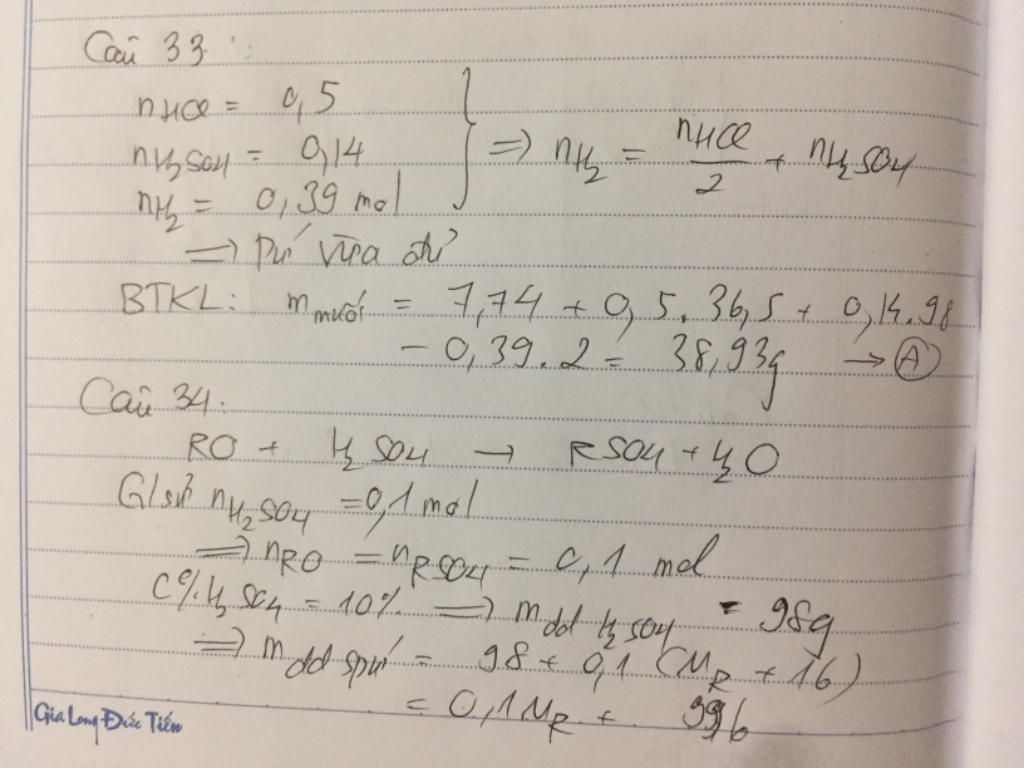 Câu 33:
nHCl = 0,5
nH₂SO₄ = 0,14 } ⟹ nH₂ = nHCl/2 + nH₂SO₄
nH₂ = 0,39 mol
⟹ Pứ vừa đủ
BTKL: mmuối = 7,74 + 0,5.36,5 + 0,14.98
− 0,39.2 = 38,93g → Ⓐ
Câu 34:
RO + H₂SO₄ → RSO₄ + H₂O
G/sử nH₂SO₄ = 0,1 mol
⟹ nRO = nRSO₄ = 0,1 mol
C% H₂SO₄ = 10% ⟹ mdd H₂SO₄ = 98g
⟹ mdd spứ = 98 + 0,1 (MR + 16)
= 0,1MR + 99,6
Gia Long Đức Tiến